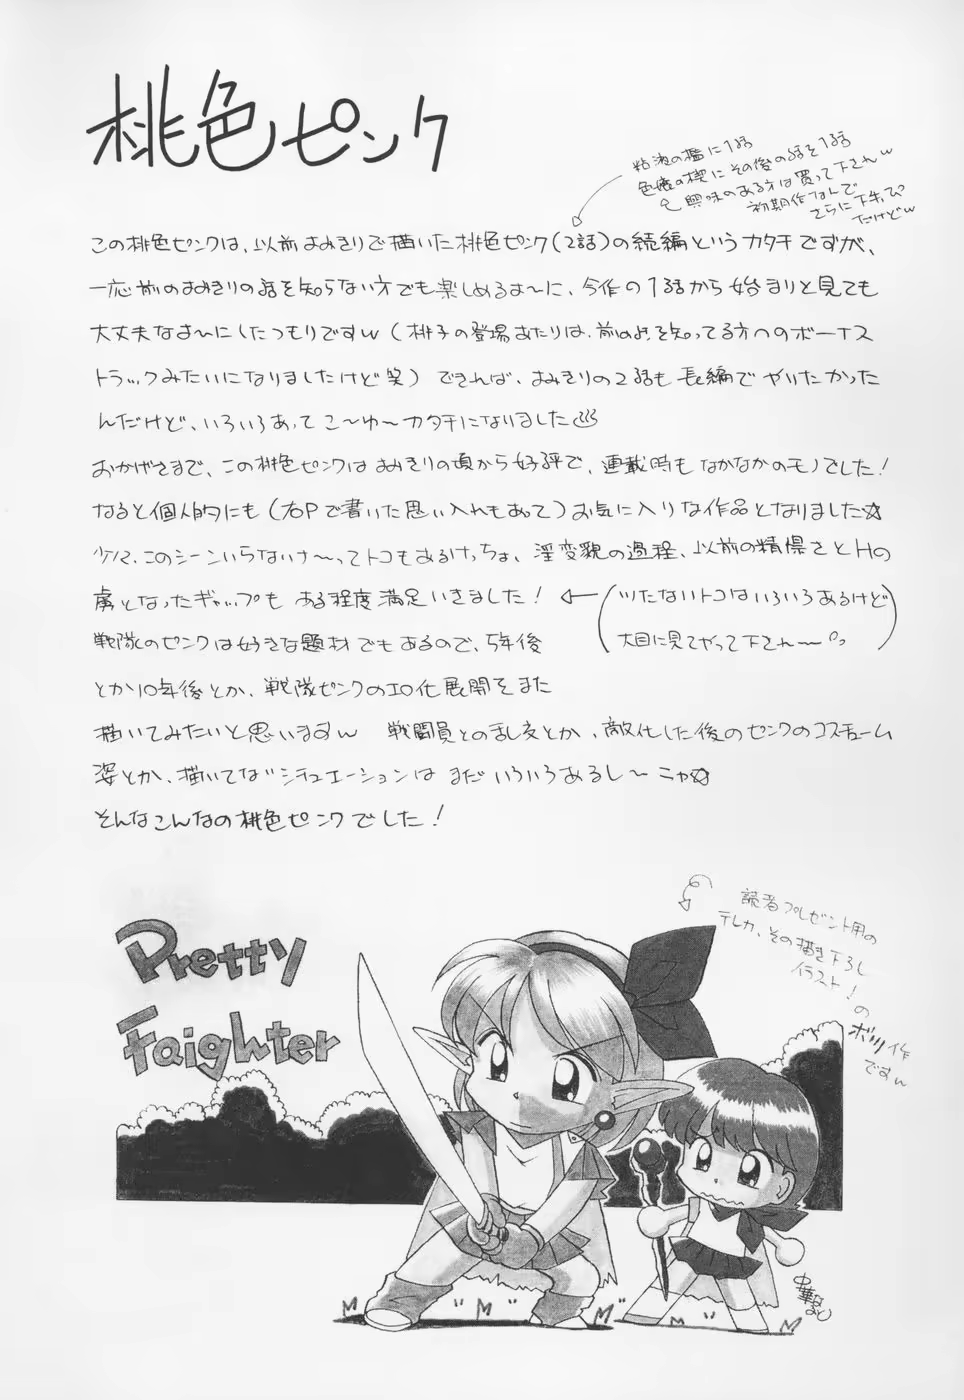 桃色ピンク
粘液の檻に1話
色癌の楔にその後の話を1話
興味のある方は買って下されw
初期作なんで
さらに下手っぴ
だけどw
この桃色ピンクは、以前よみきりで描いた桃色ピンク(2話)の続編というカタチですが、
一応前のよみきりの話を知らない方でも楽しめるよ〜に、今作の1話から始まりと見ても
大丈夫なよ〜にしたつもりですw(桃子の登場あたりは、前のを知ってる方へのボーナス
トラックみたいになりましたけど笑)できれば、よみきりの2話も長編でやりたかった
んだけど、いろいろあってこ〜ゆ〜カタチになりました
おかげさまで、この桃色ピンクはよみきりの頃から好評で、連載時もなかなかのモノでした!
なると個人的にも(右Pで書いた思い入れもあって)お気に入りな作品となりました☆
少々、このシーンいらないけ〜ってトコもあるけっちょ、淫変貌の過程、以前の精悍さとHの
虜となったギャップもある程度満足いきました!
(ツたないトコはいろいろあるけど
大目に見てやって下され〜)
戦隊のピンクは好きな題材でもあるので、5年後
とか10年後とか、戦隊ピンクのエロ化展開をまた
描いてみたいと思いますw 戦闘員との乱交とか、敵化した後のピンクのコスチューム
姿とか、描いてないシチュエーションはまだいろいろあるし〜ニャ☆
そんなこんなの桃色ピンクでした!
読者プレゼント用の
テレカ、その描き下ろし
イラスト!
の
ボツ作
ですw
Pretty
Faighter
中華なると